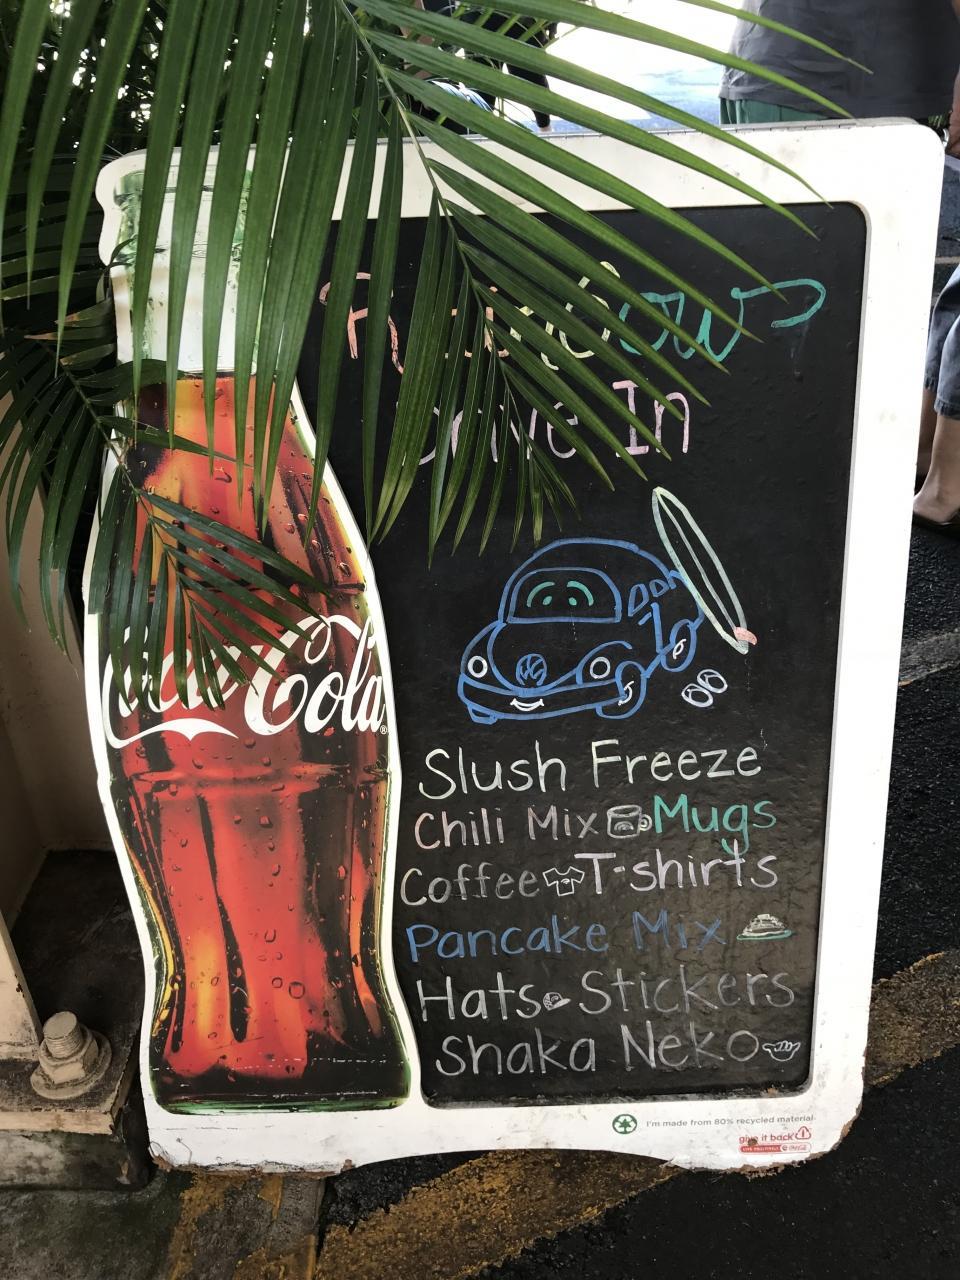 Rainbow
Drive In
Coca-Cola®
Slush Freeze
Chili Mix Mugs
Coffee T-shirts
Pancake Mix
Hats Stickers
Shaka Neko
I'm made from 80% recycled material.
give it back
LIVE POSITIVELY Coca-Cola